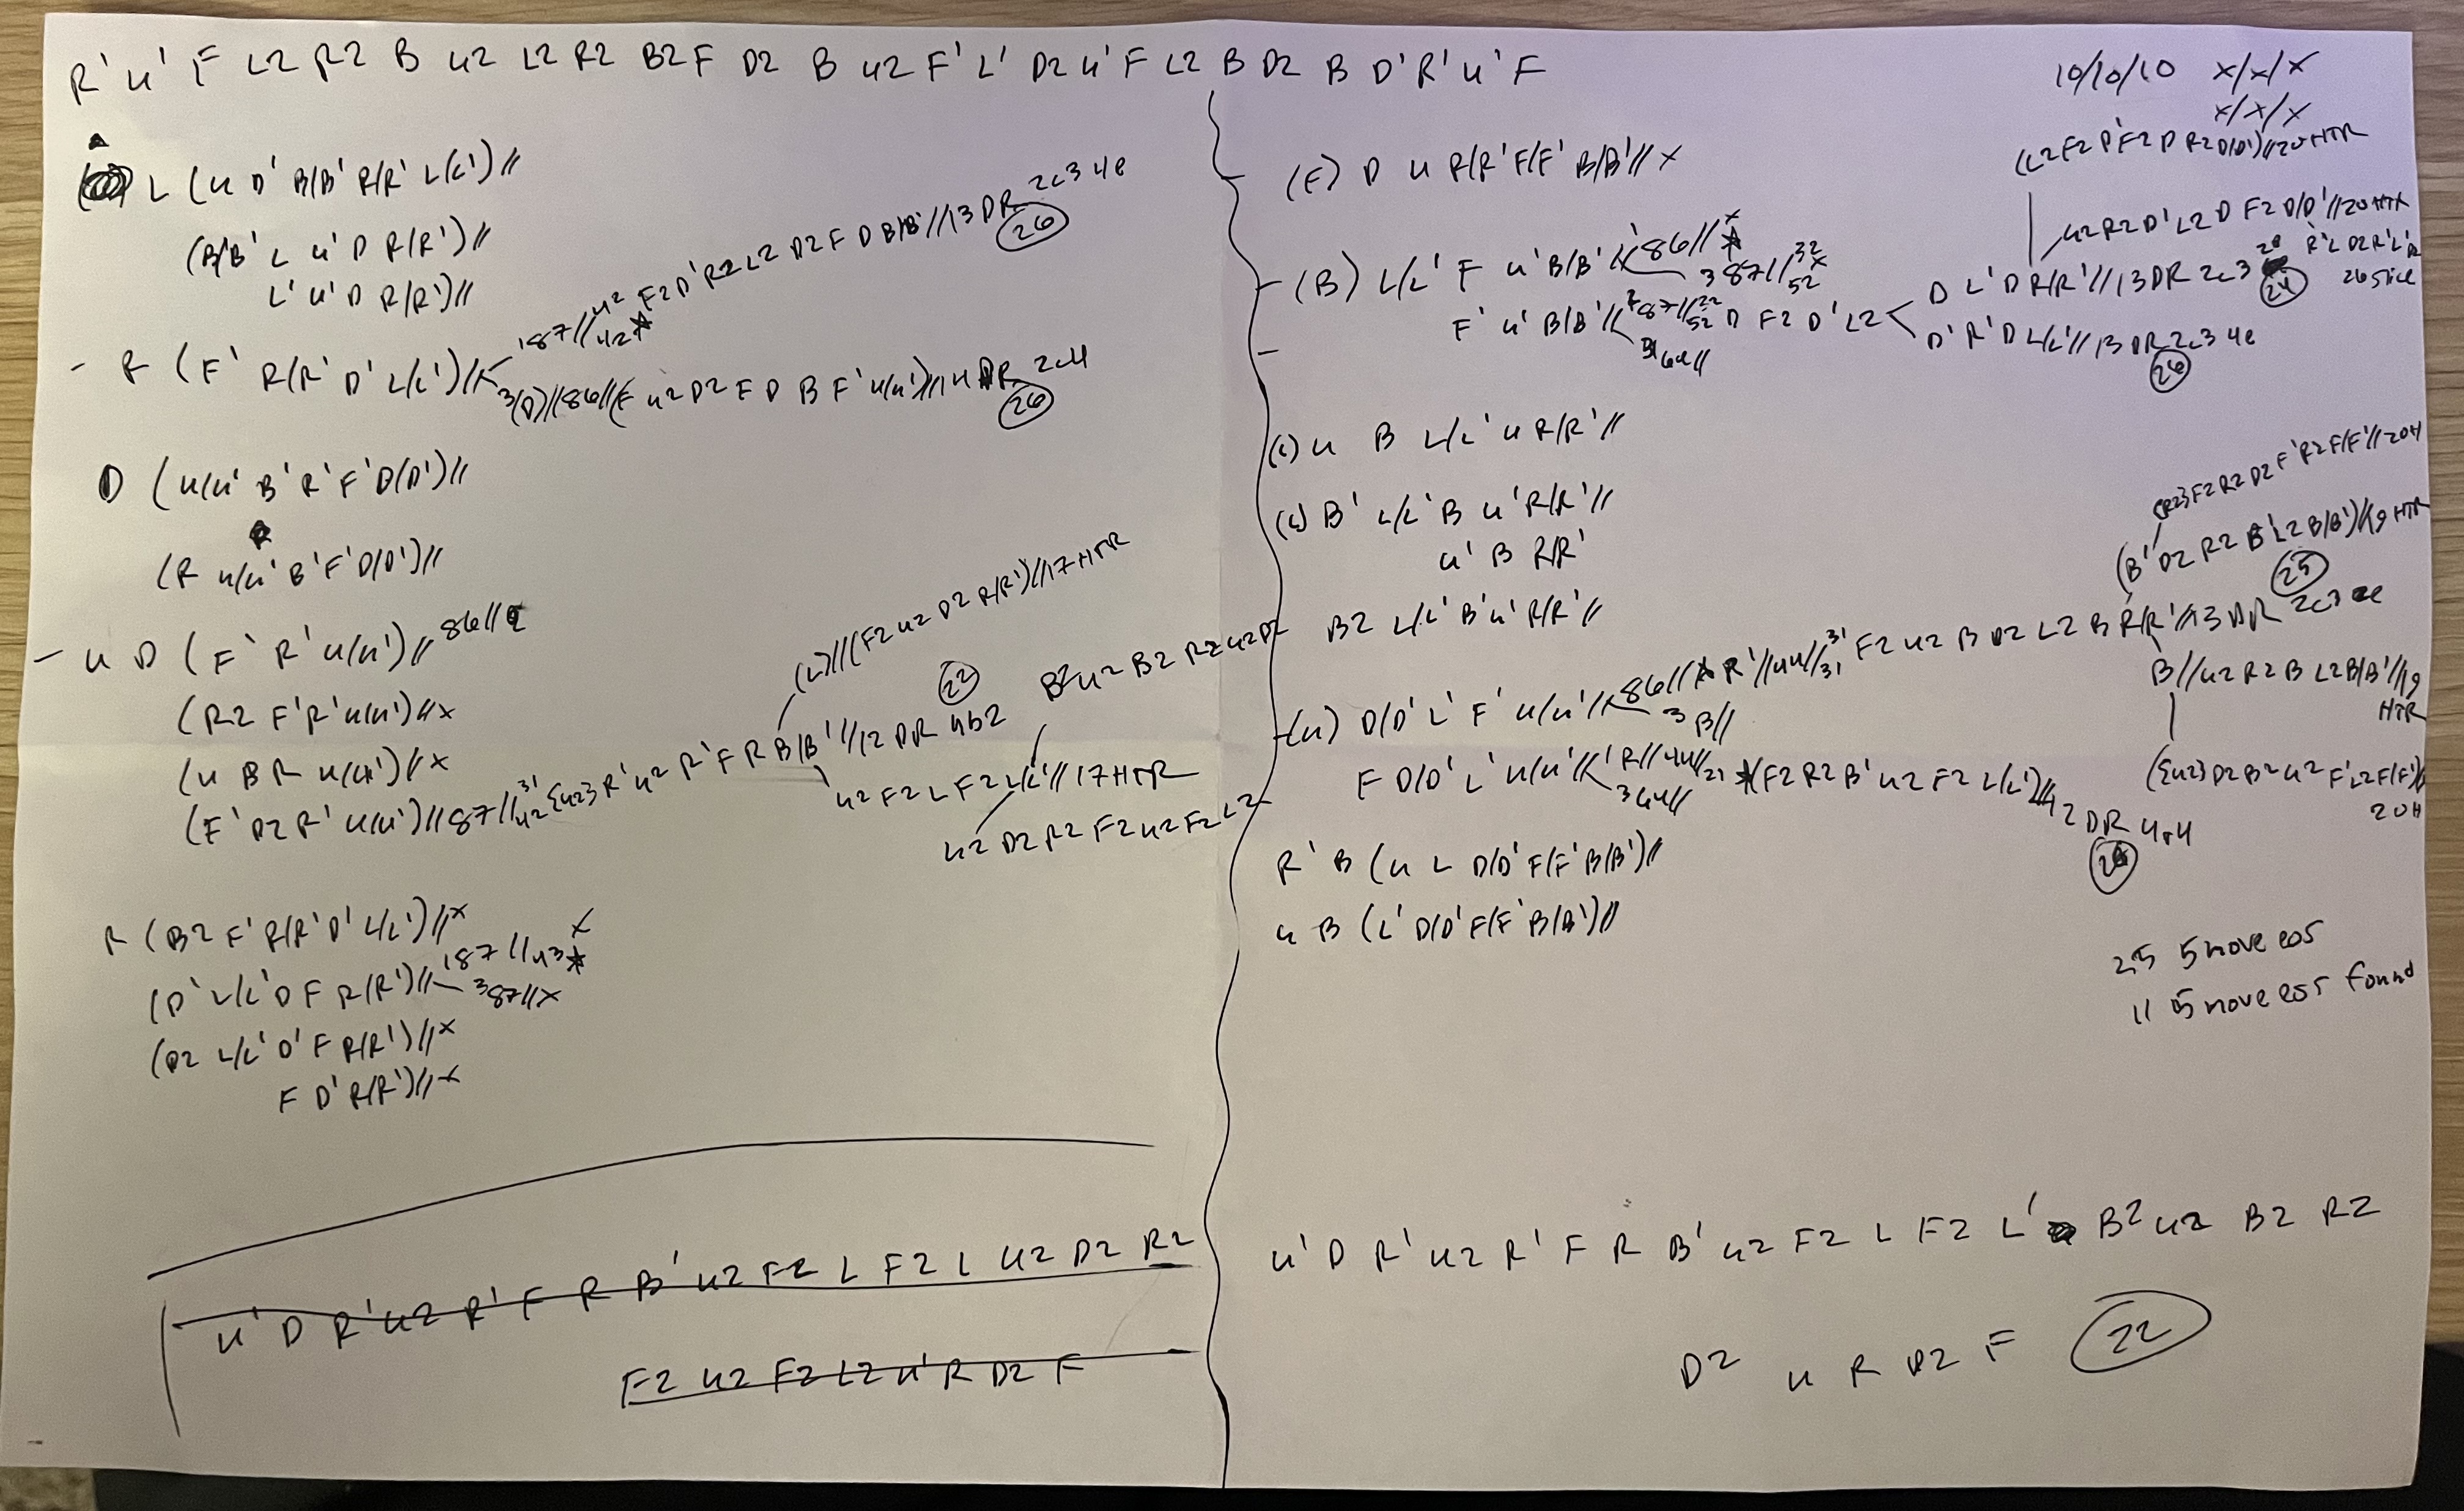 R' U' F L2 R2 B U2 L2 R2 B2 F D2 B U2 F' L' D2 U' F L2 B D2 B D' R' U' F
10/10/10 x/x/x
x/x/x
L (U D' B/B' R/R' L/L')//
(B/B' L U' D R/R')//
L' U' D R/R')//
- R (F' R/R' D' L/L')//
187// U2 F2 D' R2 L2 D2 F D B/B'//13 DR 2c3 4e
42
26
3(D)//86//(F U2 D2 F D B F' U/U')//14 DR 2c4
26
D (U/U' B' R' F' D/D')//
(R U/U' B' F' D/D')//
- U D (F' R' U/U')// 86//
(R2 F' R' U/U')//x
(U B R U/U')//x
(F' D2 R' U/U')//87// 31 42 {U2} R' U2 R' F R B/B'//12 DR 4b2
22
(L)//(F2 U2 D2 R/R')//17 HTR
U2 F2 L F2 L/L'//17 HTR
B2 U2 B2 R2 U2 D2
U2 D2 R2 F2 U2 F2 L2
R (B2 F' R/R' D' L/L')//x
(D' L/L' D F R/R')// 187//43 x
387//x
(D2 L/L' D' F R/R')//x
F D' R/R')//x
U' D R' U2 R' F R B' U2 F2 L F2 L U2 D2 R2
F2 U2 F2 L2 U' R D2 F
(F) D U R/R' F/F' B/B'//x
- (B) L/L' F U' B/B'// 186// x
387// 32 x 52
F' U' B/B'// 387// 22 52 D F2 D' L2
D L' D R/R'//13 DR 2c3
24
D' R' D L/L'//13 DR 2c3 4e
26
(L2 F2 D' F2 D R2 D/D')//20 HTR
U2 R2 D' L2 D F2 D/D'//20 HTR
R' L D2 R' L'
26 slice
(L) U B L/L' U R/R'//
(L) B' L/L' B U' R/R'//
U' B R/R'
B2 L/L' B' U' R/R'//
-(U) D/D' L' F' U/U'// 86// R'//44// 31 31 F2 U2 B D2 L2 B R/R'//13 DR 2c3
3 B//
25
(B' D2 R2 B' L2 B/B')//19 HTR
{R2} F2 R2 D2 F' R2 F/F'//20H
B//U2 R2 B L2 B/B'//19 HTR
({U2} D2 B2 U2 F' L2 F/F')//
20H
F D/D' L' U/U'// 1R//44// 21 (F2 R2 B' U2 F2 L/L')//12 DR 4b4
344//
R' B (U L D/D' F/F' B/B')//
U B (L' D/D' F/F' B/B')//
25 5 move eos
11 5 move eos found
U' D R' U2 R' F R B' U2 F2 L F2 L' B2 U2 B2 R2
D2 U R D2 F 22